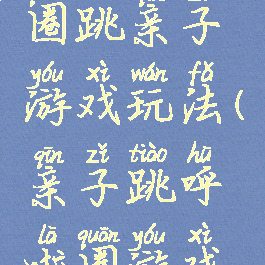 圈跳亲子
yóu xì wán fǎ
游戏玩法(
qīn zǐ tiào hū
亲子跳呼
lā quān yóu xì
啦圈游戏